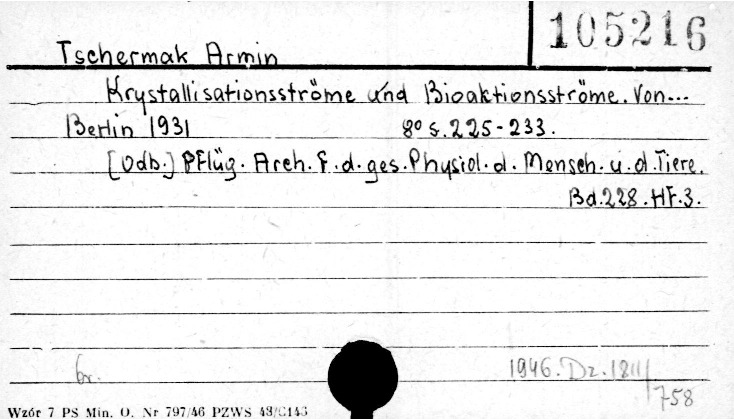 105216
Tschermak Armin
Krystallisationsströme und Bioaktionsströme. Von...
Berlin 1931 8º s. 225-233.
[Odb.] Pflüg. Arch. f. d. ges. Physiol. d. Mensch. u. d. Tiere.
Bd. 228. Hf. 3.
br. 1946. Dz. 1811/
758
Wzór 7 PS Min. O. Nr 797/46 PZWS 48/C143